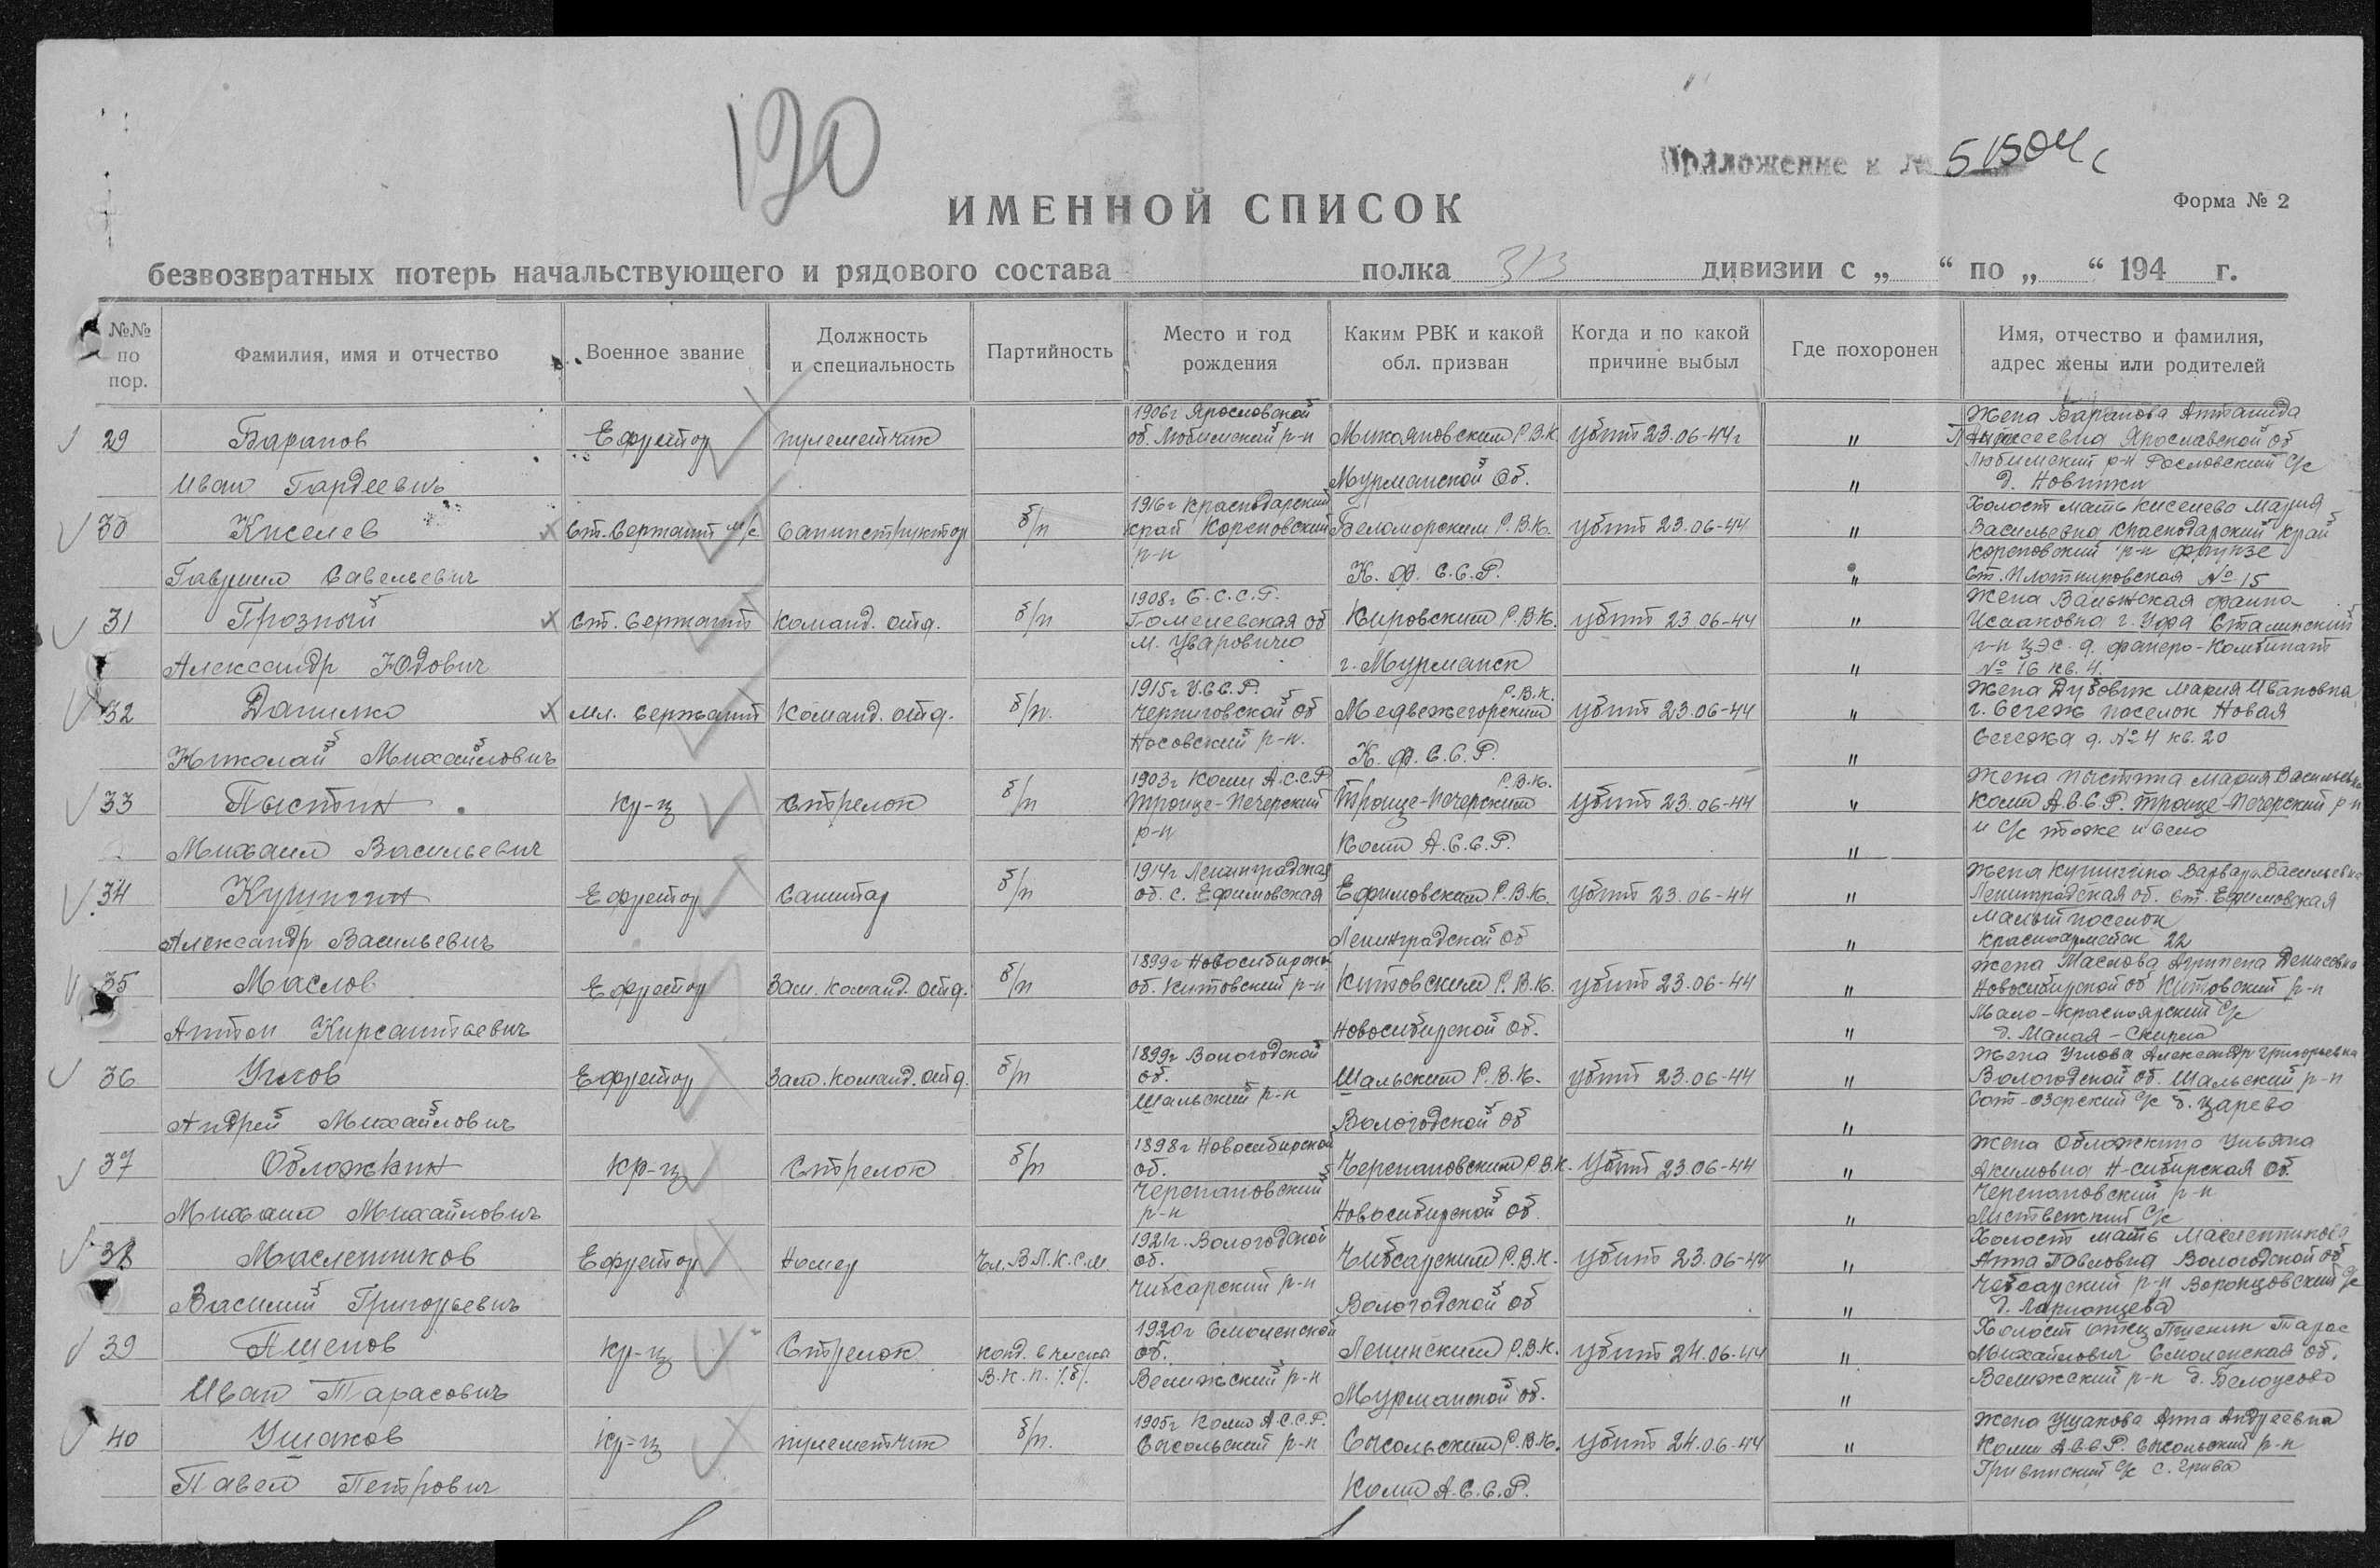 190
Приложение к № 51504с
ИМЕННОЙ СПИСОК
Форма № 2
безвозвратных потерь начальствующего и рядового состава полка 313 дивизии с „ “ по „ “ 194 г.
№№ по пор.
Фамилия, имя и отчество
Военное звание
Должность и специальность
Партийность
Место и год рождения
Каким РВК и какой обл. призван
Когда и по какой причине выбыл
Где похоронен
Имя, отчество и фамилия, адрес жены или родителей
29 Баранов Ефрейтор пулеметчик 1906г Ярославской об. Любимский р-н Микояновским Р.В.К. убит 23.06-44г " Жена Баранова
Иван Гардеевич Мурманской об. " Ярославской об Любимский р-н с/с д. Новинки
30 Киселев Ст. Сержант м/с Санинструктор б/п 1916г Краснодарский край Кореновский р-н Беломорским Р.В.К. убит 23.06-44 " Холост мать Киселева Мария
Гавриил Савельевич К. Ф. С.С.Р. " Васильевна Краснодарский край Кореновский р-н Фрунзе № 15
31 Грозный Ст. Сержант Команд. отд. б/п 1908г Б.С.С.Р. Гомелевская об м. Уваровичи Кировским Р.В.К. убит 23.06-44 " Жена Фаина
Александр Юдович г. Мурманск " Исааковна г. Уфа Сталинский р-н ЦЭС д. фанеро-Комбинат № 16 кв. 4.
32 Данилко Мл. Сержант Команд. отд. б/п. 1915г У.С.С.Р. Черниговской об Носовский р-н. Медвежегорским Р.В.К. убит 23.06-44 " Жена Дубовик Мария Ивановна
Николай Михайлович К. Ф. С.С.Р. " г. Сегеж поселок Новая Сегежа д. № 4 кв. 20
33 Пыстин кр-ц Стрелок б/п 1903г Коми А.С.С.Р Троице-Печерский р-н Троице-Печерским Р.В.К. убит 23.06-44 " Жена Пыстина Мария Васильевна
Михаил Васильевич Коми А.С.С.Р. " Коми А.С.С.Р. Троице-Печерский р-н и с/с тоже и село
34 Кушигин Ефрейтор Санитар б/п 1914г Ленинградская об. с. Ефимовская Ефимовским Р.В.К. убит 23.06-44 " Жена Варвара Васильевна
Александр Васильевич Ленинградской об " Ленинградская об. ст. Ефимовская Малый поселок 22
35 Маслов Ефрейтор Зам. команд. отд. б/п 1899г Новосибирской об. Китовский р-н Китовским Р.В.К. убит 23.06-44 " Жена Маслова Агрипена Денисовна
Антон Кирсантьевич Новосибирской об. " Новосибирской об Китовский р-н Мало-Красноярский с/с д. Малая-Скирла
36 Углов Ефрейтор Зам. команд. отд. б/п 1899г Вологодской об. Шальский р-н Шальским Р.В.К. убит 23.06-44 " Жена Углова Александр Григорьевна
Андрей Михайлович Вологодской об " Вологодской об. Шальский р-н с/с д. Царево
37 Обложкин кр-ц Стрелок б/п 1898г Новосибирской об. Черепановский р-н Черепановским Р.В.К. Убит 23.06-44 " Жена Обложкина Ульяна
Михаил Михайлович Новосибирской об. " Акимовна Н-сибирская об. Черепановский р-н с/с
38 Маслеников Ефрейтор Номер Чл. В.Л.К.С.М. 1921г. Вологодской об. Чибсарский р-н Чибсарским Р.В.К. убит 23.06-44 " Холост мать Масленникова
Василий Григорьевич Вологодской об " Анна Павловна Вологодской об Чебсарский р-н Воронцовский с/с
39 Пшенов кр-ц Стрелок канд. в члены В.К.П./б/. 1920г Смоленской об. Велижский р-н Ленинским Р.В.К. убит 24.06-44 " Холост отец Тарас
Иван Тарасович Мурманской об. " Михайлович Смоленская об. Велижский р-н д. Белоусово
40 Ушаков Кр-ц пулеметчик б/п. 1905г Коми А.С.С.Р. Сысольский р-н Сысольским Р.В.К. убит 24.06-44 " Жена Ушакова Анна Андреевна
Павел Петрович Коми А.С.С.Р. Коми А.С.С.Р. Сысольский р-н Гривинский с/с с. Грива